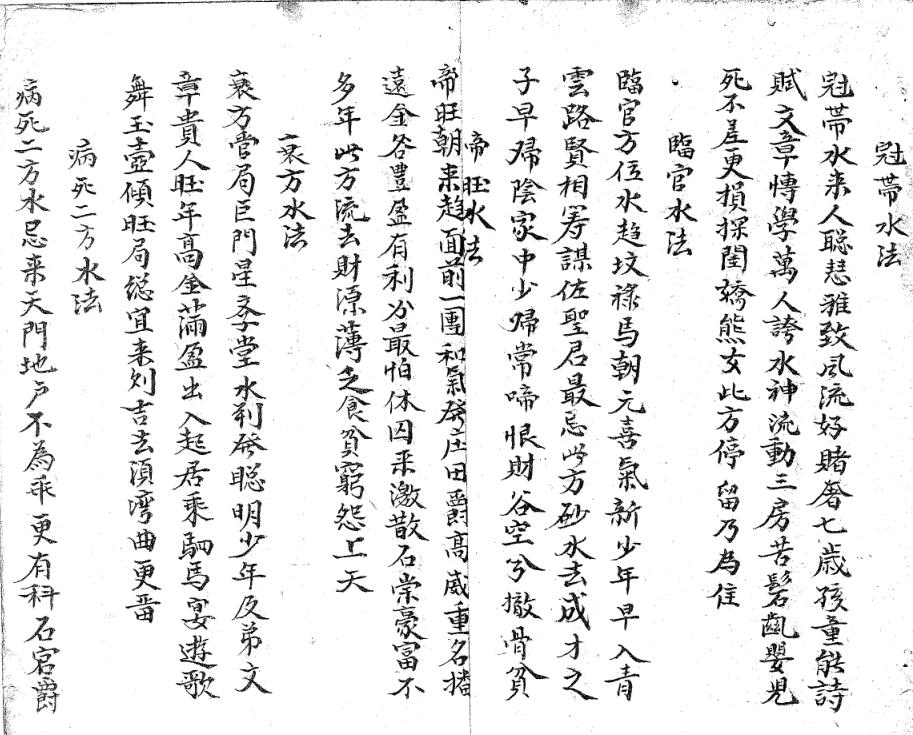 冠帶水法
冠帶水来人聡慧雅致风流好賭奢七歲孩童能詩
賦文章愽學萬人誇水神流動三房苦髫齓嬰児
死不差更損探閨嬌熊女此方停留乃為佳
臨官水法
臨官方位水趋坟祿馬朝元喜氣新少年早入青
雲路賢相籌謀佐聖君最忌此方砂水去成才之
子早帰陰家中少帰常啼恨財谷空兮撤骨貧
帝旺水法
帝旺朝来趋面前一團和氣發庄田爵髙威重名播
遠金谷豊盈有利分最怕休囚来激散石崇豪富不
多年此方流去財源薄乏食貧窮怨上天
衰方水法
衰方官局巨門星孝堂水到發聡明少年及弟文
章貴人旺年髙金滿盈出入起居乘駟馬宴遊歌
舞玉壺傾旺局總宜来則吉去湏灣曲更番
病死二方水法
病死二方水忌来天門地户不為乖更有科石官爵